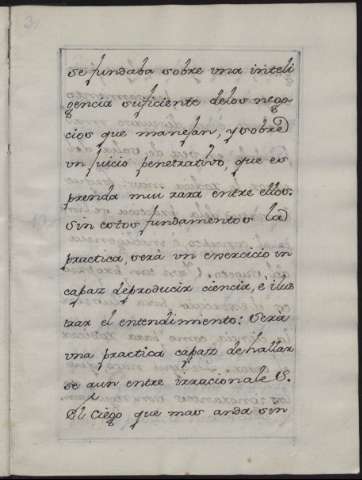 se fundaba sobre vna inteli
gencia suficiente delos nego-
cios que manejan, y sobre
vn juicio penetrativo, que es
prenda mui rara entre ellos.
Sin estos fundamentos la
practica, será un exercicio in
capaz deproducir ciencia, é ilus
trar el entendimiento: Será
vna practica capaz de hallar
se aun entre irracionales.
El Ciego que mas anda sin